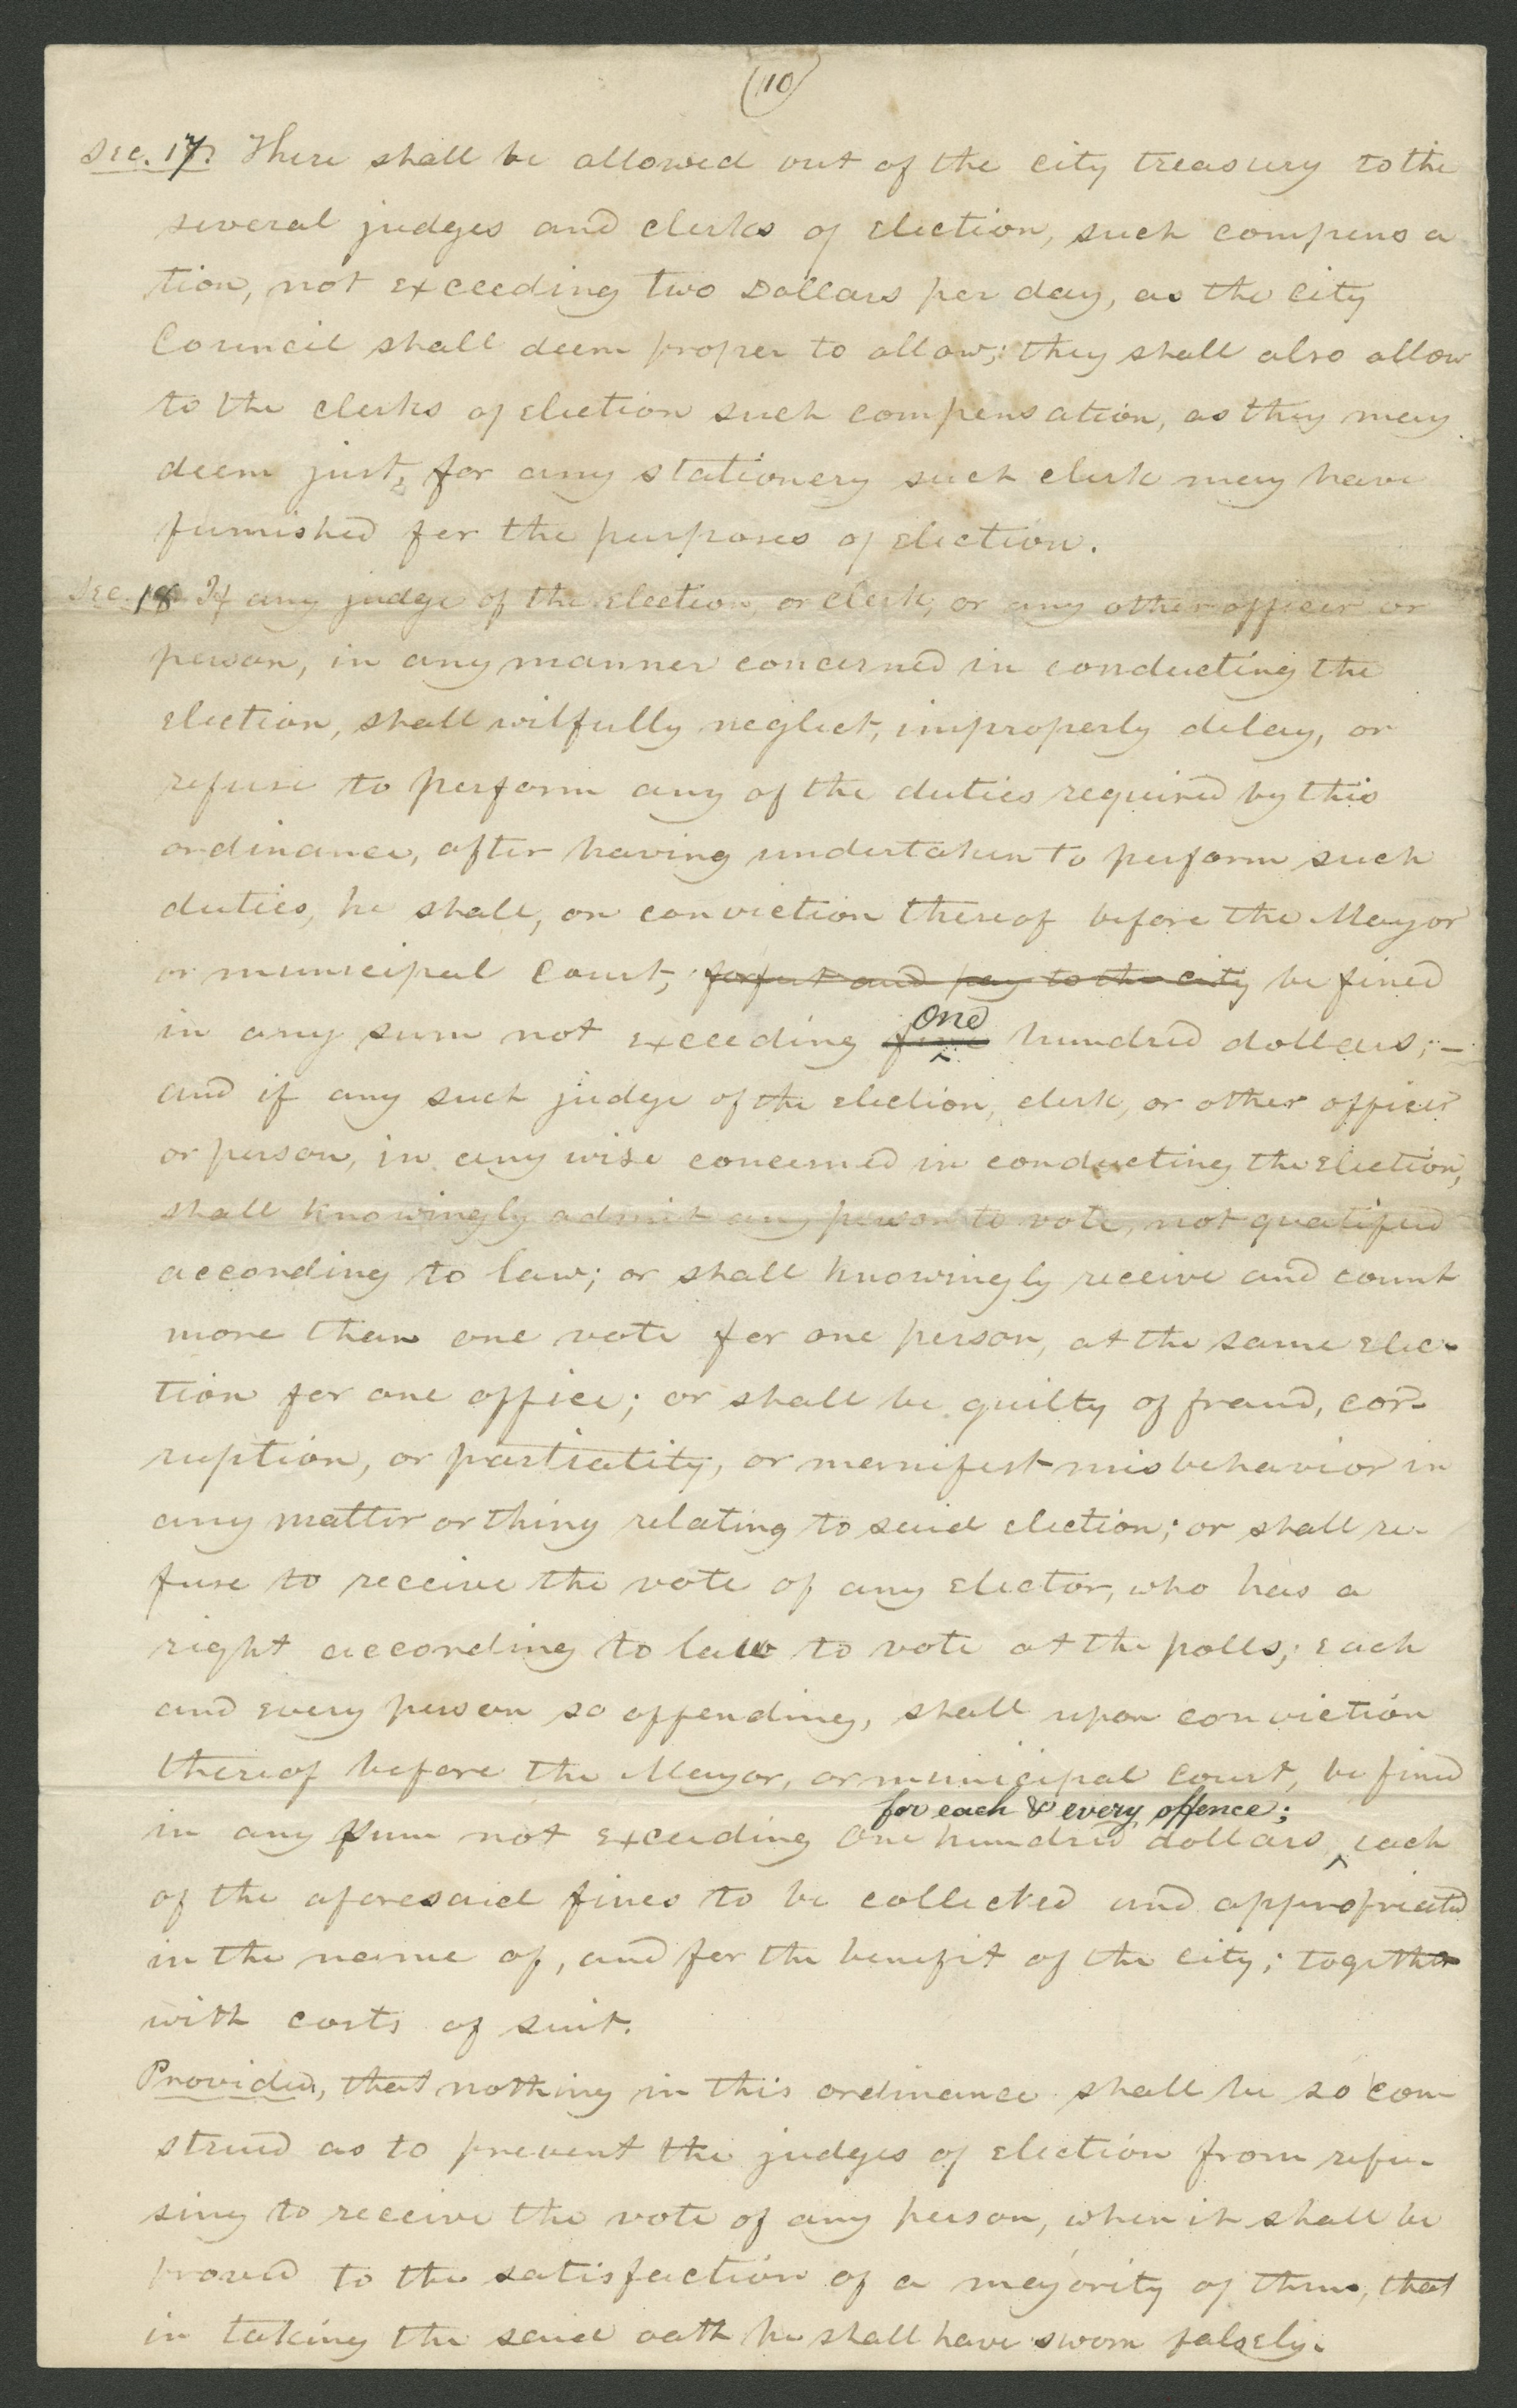 (10)
Sec. 17. There shall be allowed out of the city treasury to the
several judges and clerks of election, such compensa
tion, not exceeding two Dollars per day, as the City
Council shall deem proper to allow; they shall also allow
to the clerks of election such compensation, as they may
deem just, for any stationery such clerk may have
furnished for the purposes of election.
Sec. 18. If any judge of the election, or clerk, or any other officer or
person, in any manner concerned in conducting the
election, shall wilfully neglect, improperly delay, or
refuse to perform any of the duties required by this
ordinance, after having undertaken to perform such
duties, he shall, on conviction thereof before the Mayor
or municipal Court, forfeit and pay to the city be fined
one
in any sum not exceeding five hundred dollars;—
and if any such judge of the election, clerk, or other officer
or person, in any wise concerned in conducting the election,
shall knowingly admit any person to vote, not qualified
according to law; or shall knowingly receive and count
more than one vote for one person, at the same elec-
tion for one office; or shall be guilty of fraud, cor-
ruption, or partiality, or manifest misbehavior in
any matter or thing relating to said election; or shall re-
fuse to receive the vote of any elector, who has a
right according to law to vote at the polls; each
and every person so offending, shall upon conviction
thereof before the Mayor, or municipal court, be fined
for each & every offence;
in any sum not exceeding One hundred dollars, each
of the aforesaid fines to be collected and appropriated
in the name of, and for the benefit of the city; together
with costs of suit.
Provided, that nothing in this ordinance shall be so con-
strued as to prevent the judges of election from refu-
sing to receive the vote of any person, when it shall be
proved to the satisfaction of a majority of them, that
in taking the said oath he shall have sworn falsely.